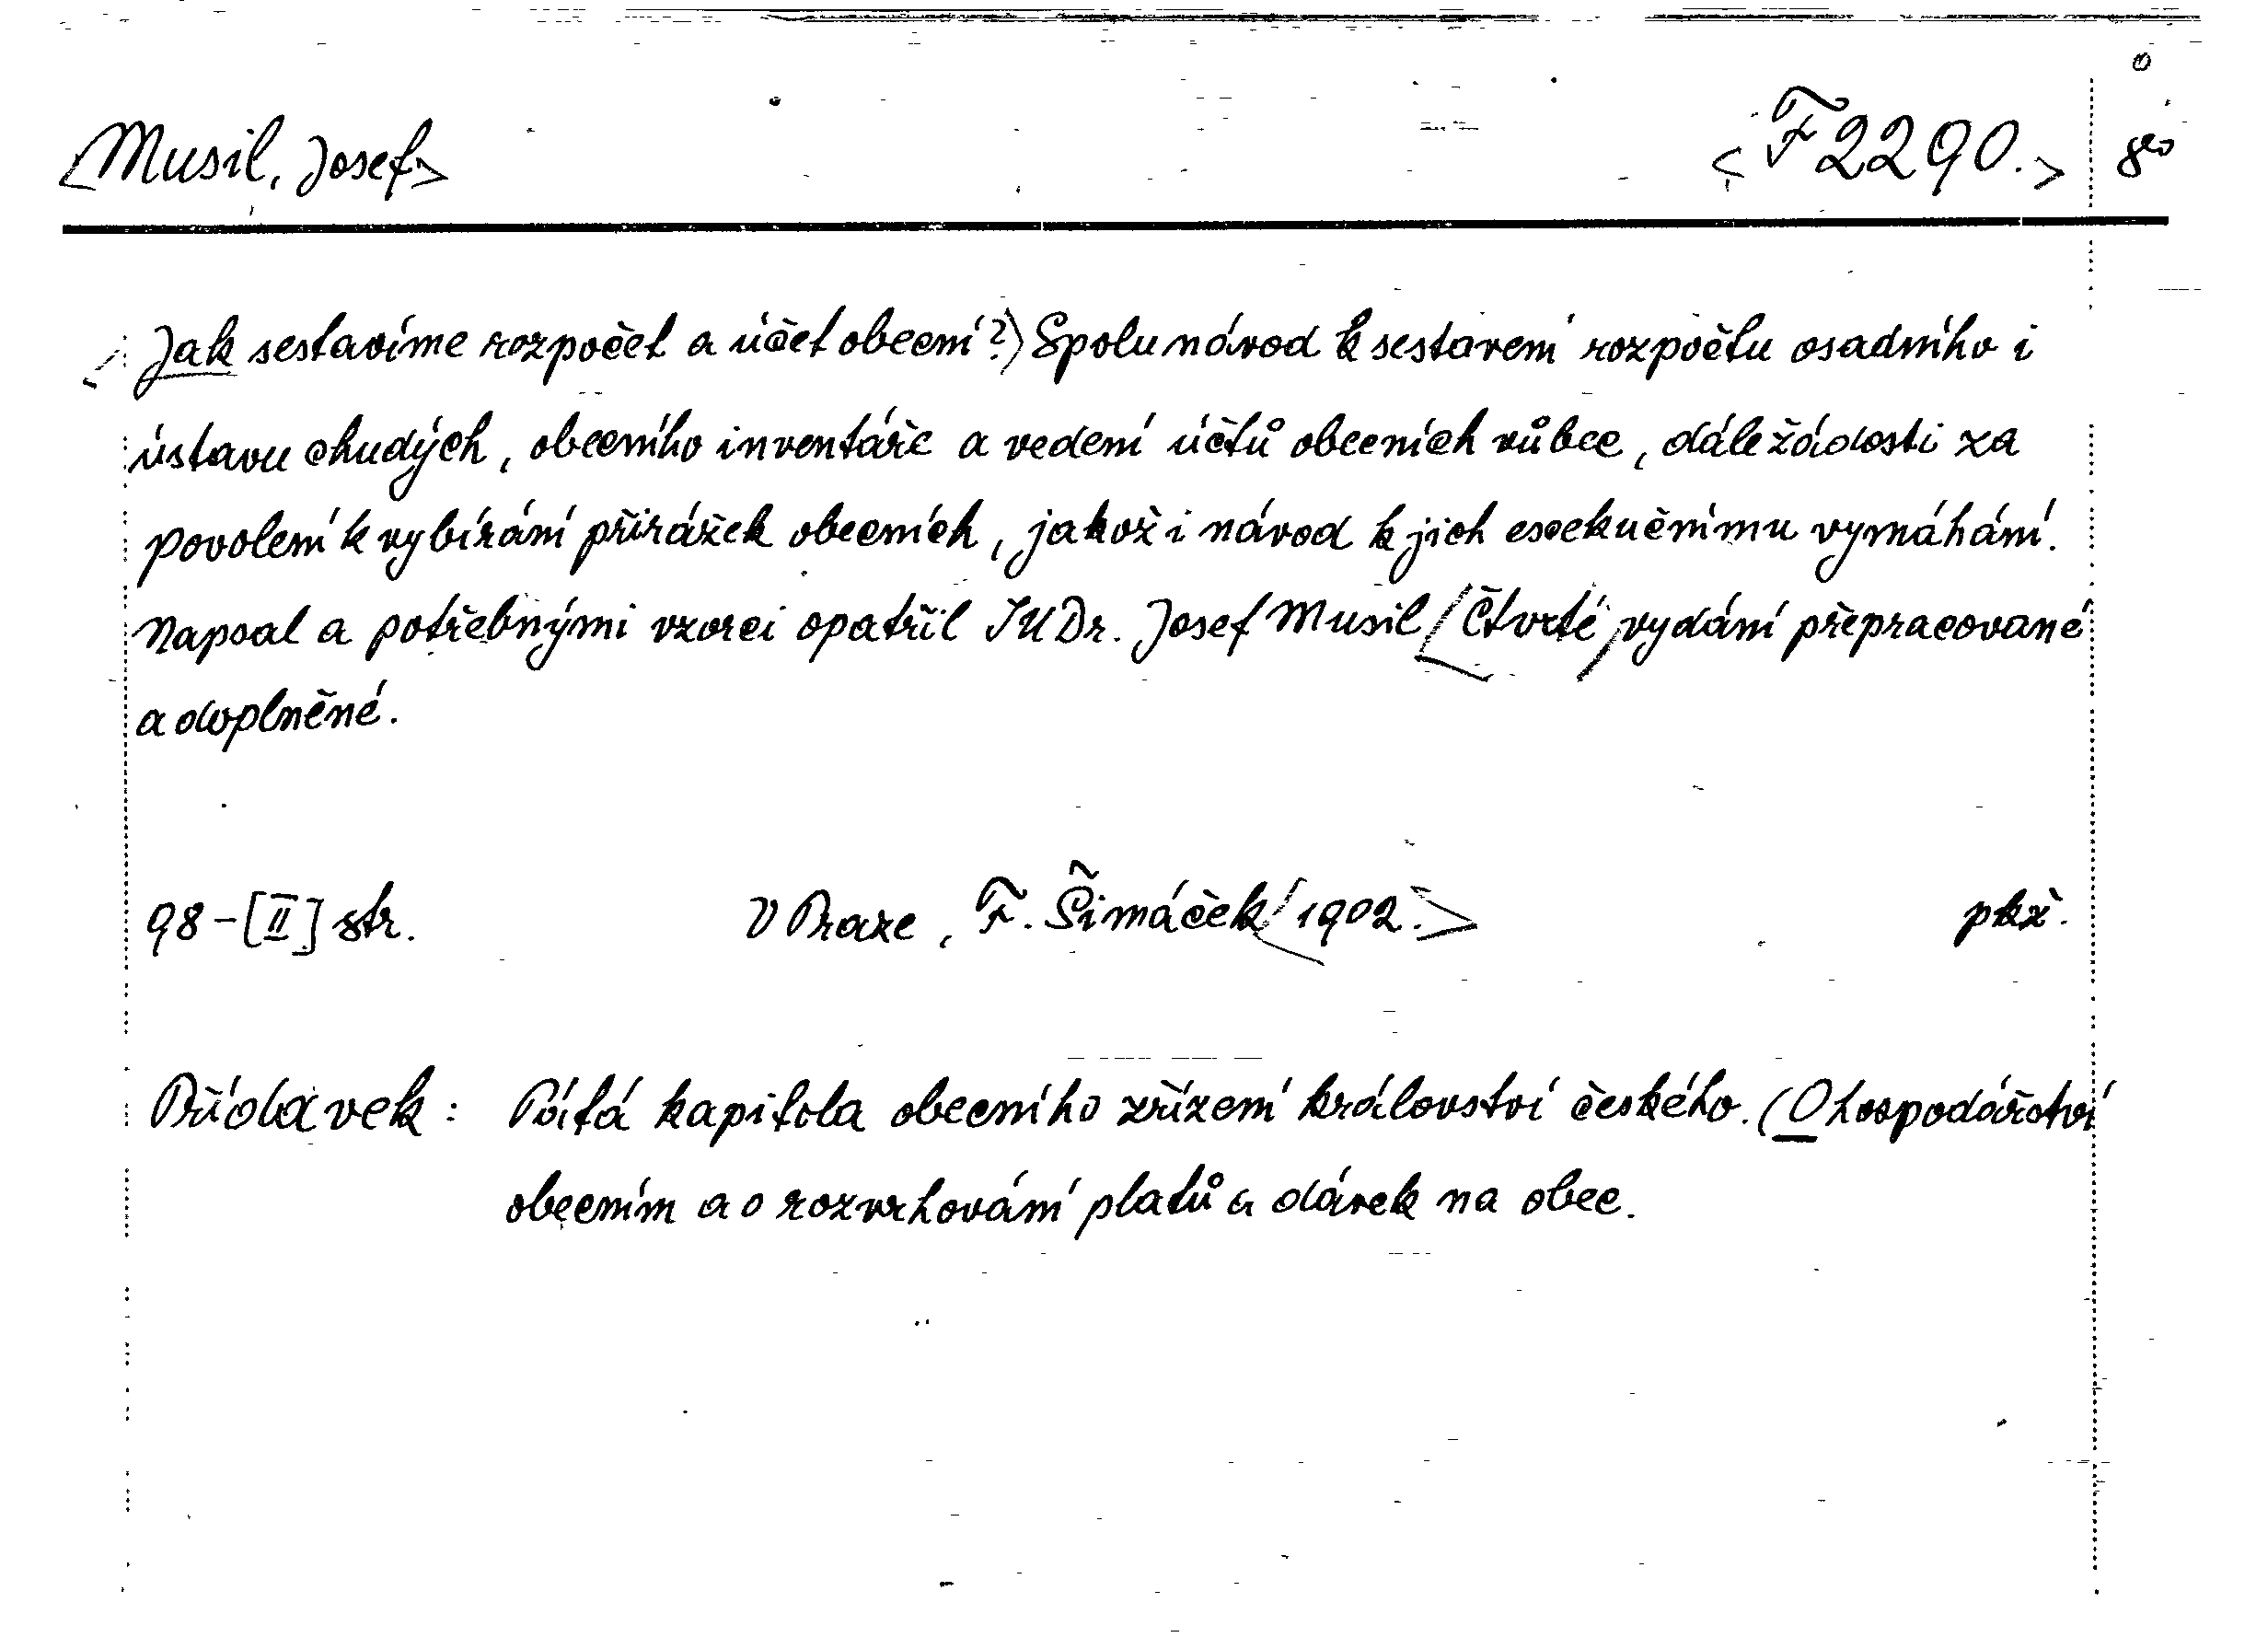 <Musil, Josef> <F 2290.> 8°
<Jak sestavíme rozpočet a účet obecní?> Spolu návod k sestavení rozpočtu osadního i
ústavu chudých, obecního inventáře a vedení účtů obecních vůbec, dále žádosti za
povolení k vybírání přirážek obecních, jakož i návod k jich exekučnímu vymáhání.
Napsal a potřebnými vzorci opatřil JUDr. Josef Musil <Čtvrté> vydání přepracované
a doplněné.
98-[II] str. V Praze, F. Šimáček <1902.>
Přídavek: Pátá kapitola obecního zřízení království českého. (O hospodářství
obecním a o rozvrhování platů a dávek na obec.